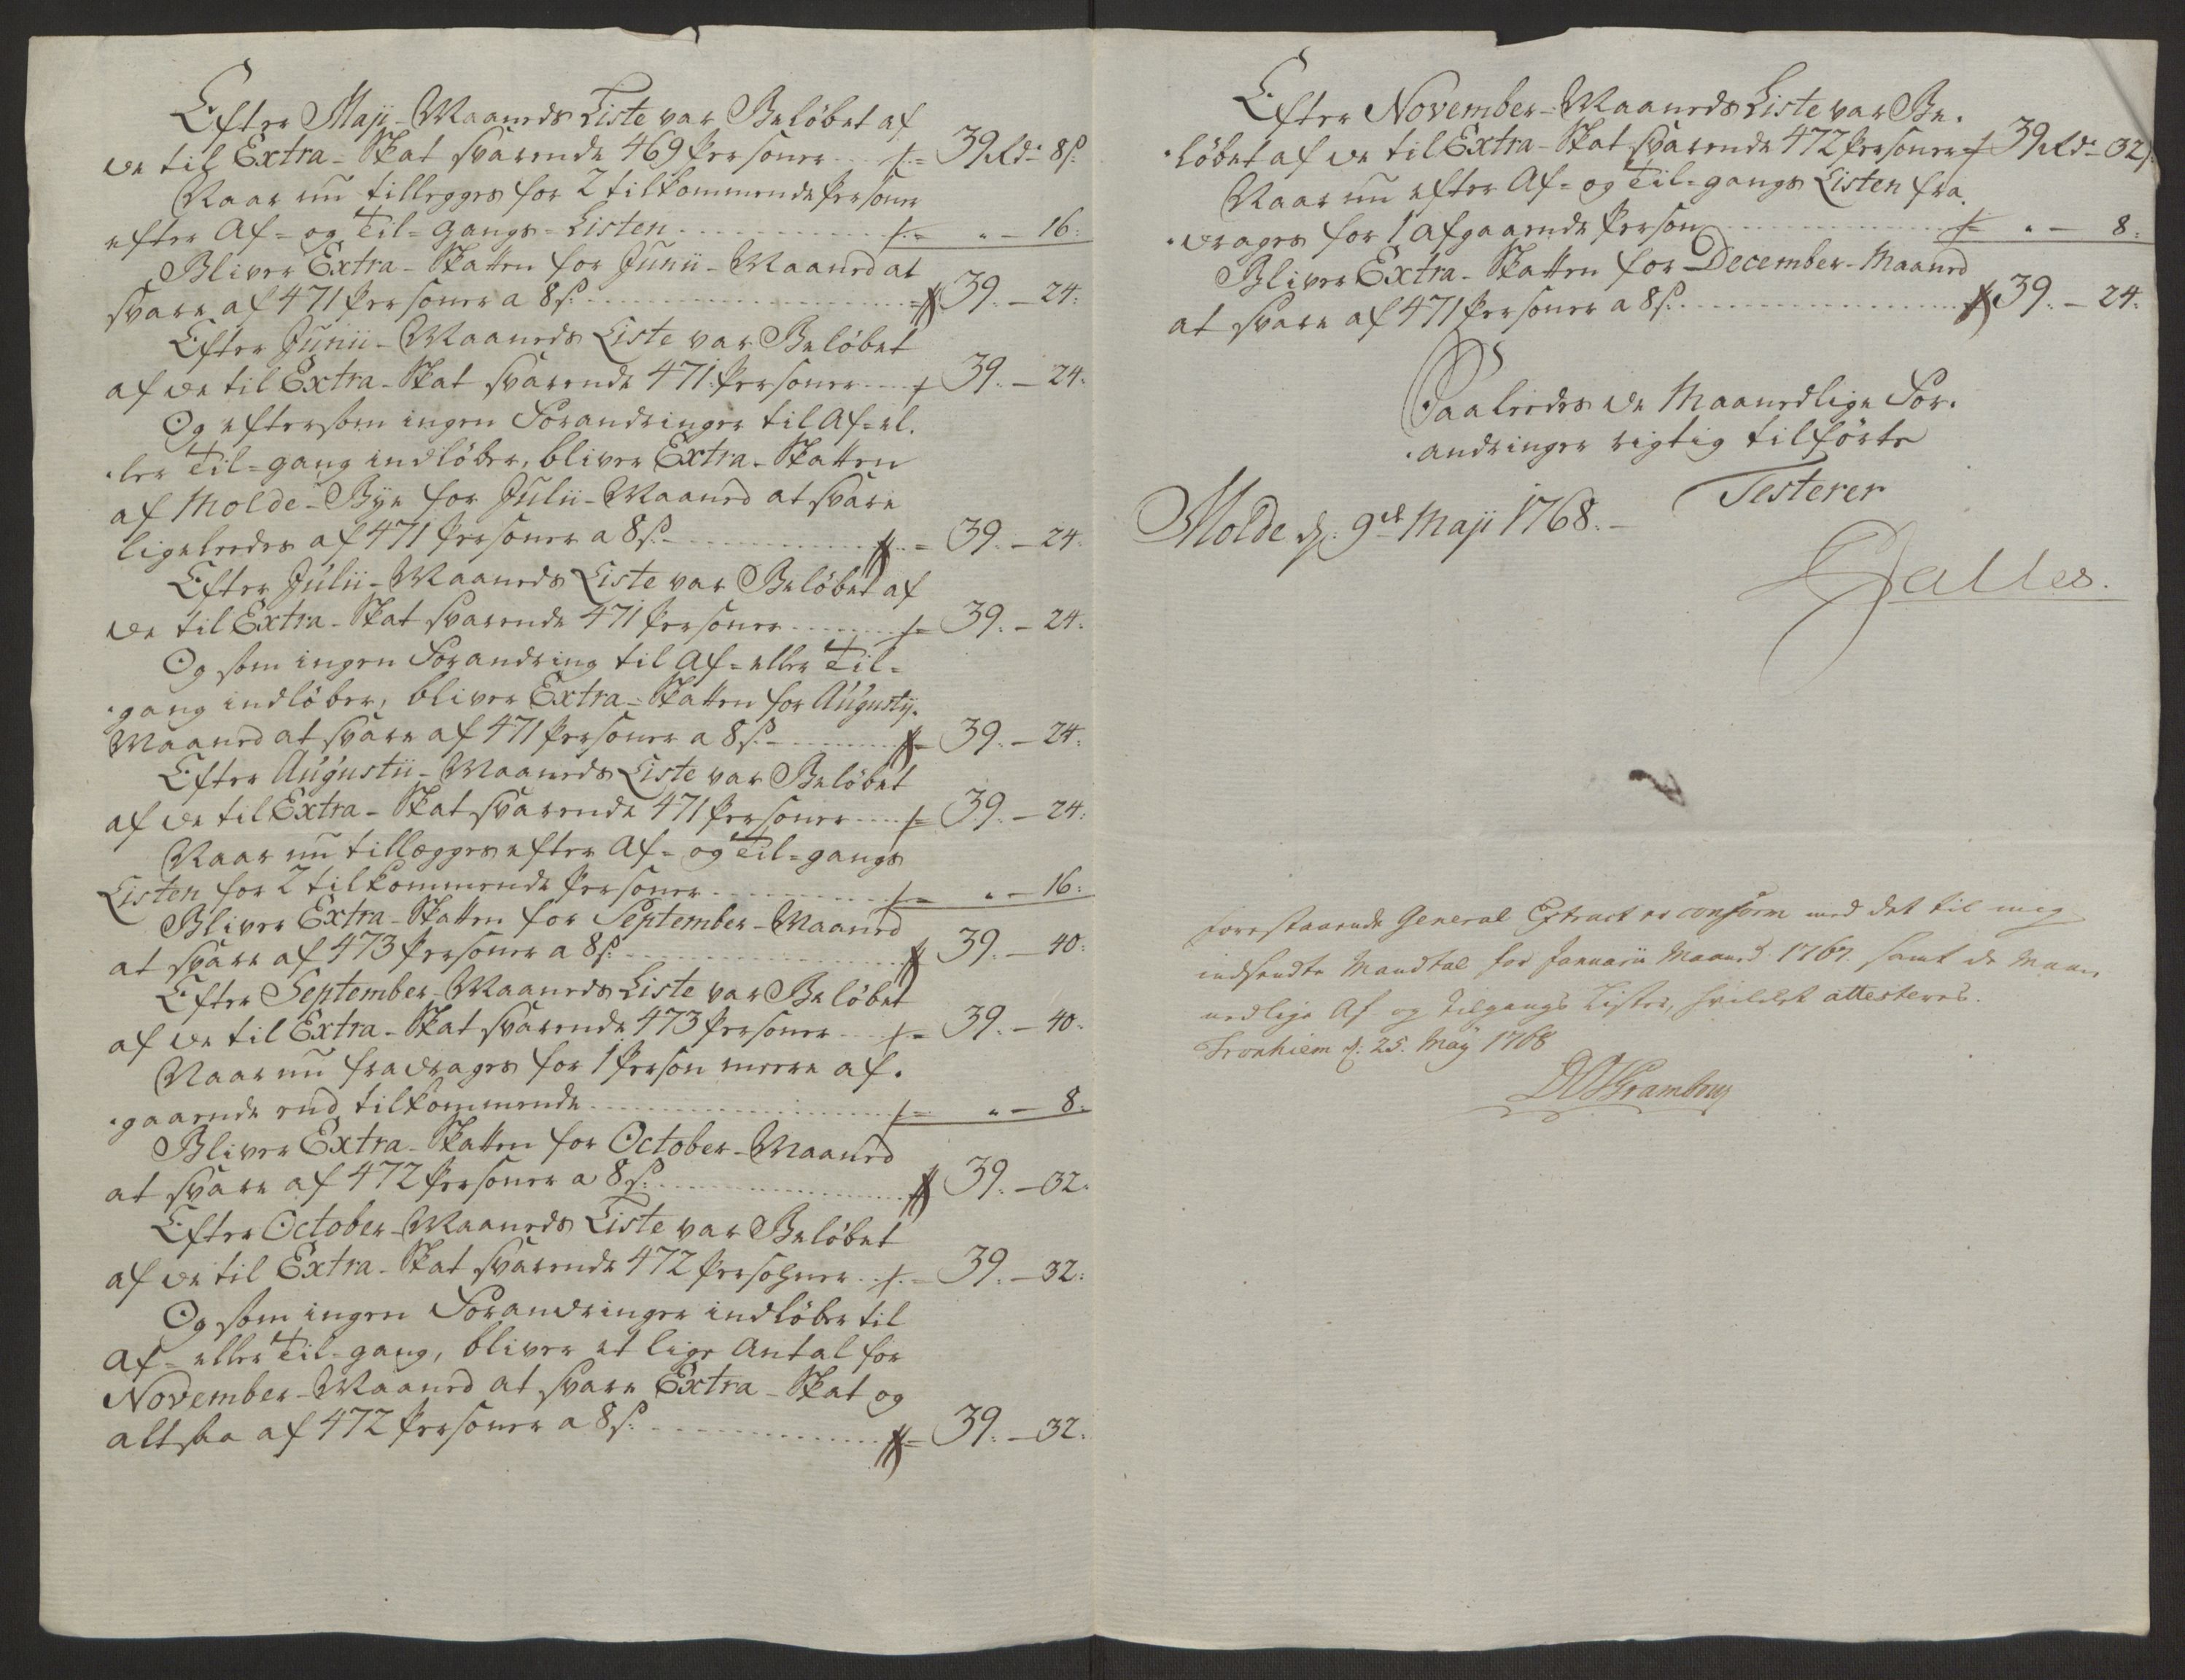 Efter Maji-Maaneds Liste var Beløbet af
de til Extra-Skat svarende 469 Personer - - /: = 39 Rdr 8 s:
Naar nu tillegges for 2 tilkommende Personer
efter Af= og Til=gangs=Listen - - - - - /: = " — 16:
Bliver Extra-Skatten for Junii-Maaned at
svare af 471 Personer a 8 s: - - - - - 39. — 24:
Efter Junii-Maaneds Liste var Beløbet
af de til Extra-Skat svarende 471 Personer - - 39. — 24:
Og eftersom ingen Forandringer til Af=el.
.ler Til=gang indløber, bliver Extra-Skatten
af Molde-Bye for Julii-Maaned at svare
ligeleedes af 471 Personer a 8 s: - - - - 39. — 24:
Efter Julii-Maaneds Liste var Beløbet af
de til Extra-Skat svarende 471 Personer - - - /= 39. — 24:
Og som ingen Forandring til Af=eller Til=
.gang indløber, bliver Extra-Skatten for Augustij.
Maaned at svare af 471 Personer a 8 s: - - - 39. — 24:
Efter Augustii-Maaneds Liste var Beløbet
af de til Extra-Skat svarende 471 Personer - - /= 39. — 24:
Naar nu tillægges efter Af= og Til=gangs
Listen for 2 tilkommende Personer - - - - /= " — 16:
Bliver Extra-Skatten for September-Maaned
at svare af 473 Personer a 8 s: - - - - 39. — 40:
Efter September-Maaneds Liste var Beløbet
af de til Extra-Skat svarende 473 Personer - - /= 39. — 40:
Naar nu fradrages for 1 Person meere af.
.gaaende end tilkommende - - - - - /= " — 8:
Bliver Extra-Skatten for October-Maaned
at svare af 472 Personer a 8 s: - - - - 39. — 32:
Efter October-Maaneds Liste var Beløbet
af de til Extra-Skat svarende 472 Persohner - - /: = 39. — 32:
Og som ingen Forandringer indløber til
Af- eller Til-gang, bliver et lige Antal for
November-Maaned at svare Extra-Skat og
altsaa af 472 Personer a 8 s: - - - - 39. — 32:
Efter November-Maaneds Liste var Be.
.løbet af de til Extra-Skat svarende 472 Personer /= 39 Rdr 32 s:
Naar nu efter Af= og Til=gangs Listen fra.
.drages for 1 afgaaende Person - - - - /= " — 8:
Bliver Extra-Skatten for December-Maaned
at svare af 471 Personer a 8 s: - - - - 39. — 24:
Saaleedes de Maanedlige For.
.andringer rigtig tilførte
Testerer
Molde d: 9de Maji 1768. —
Forestaaende General Extract er conform med det til mig
indsendte Mandtal for Januarii Maaned 1767. samt de Maa-
nedlige Af og tilgangs Lister, hvilket attesteres.
Tronhiem d: 25. Maÿ 1768